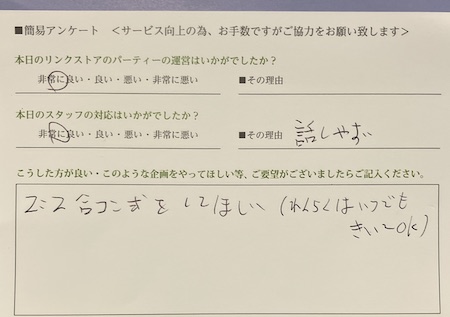 ■簡易アンケート ＜サービス向上の為、お手数ですがご協力をお願い致します＞
本日のリンクストアのパーティーの運営はいかがでしたか？
非常に良い・良い・悪い・非常に悪い ■その理由
本日のスタッフの対応はいかがでしたか？
非常に良い・良い・悪い・非常に悪い ■その理由 話しやすい
こうした方が良い・このような企画をやってほしい等、ご要望がございましたらご記入ください。
2:2 合コン式をしてほしい (れんらくはいつでも
きいてOK)